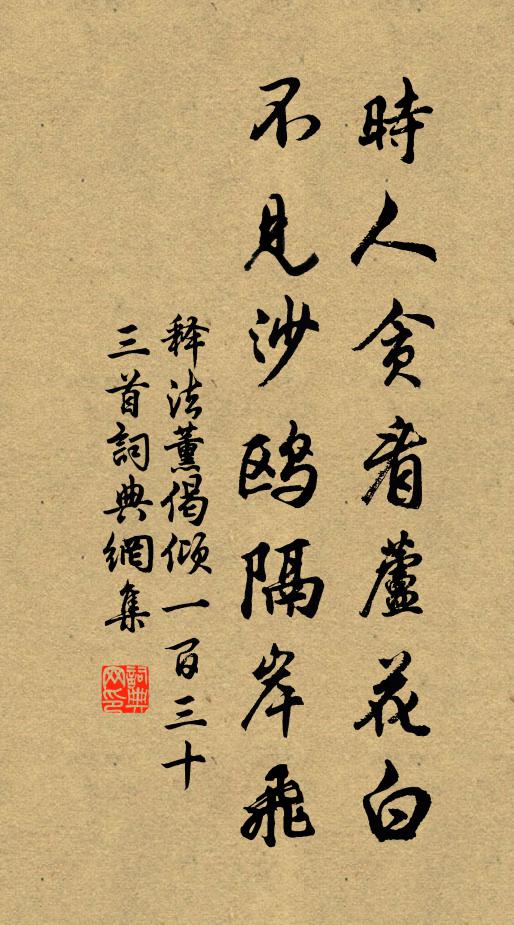 時人贪看蘆花白
不見沙鸥隔岸飛
释法薰偈倾一百三十
三首詞典網集
詞典網印